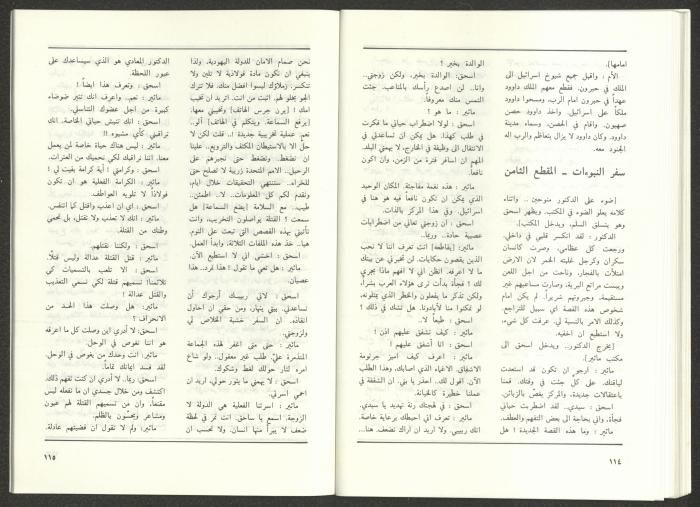 امامها).
الأم : واقبل جميع شيوخ اسرائيل الى
الملك في حبرون. فقطع معهم الملك داوود
عهداً في حبرون امام الرب. ومسحوا داوود
ملكاً على اسرائيل. واخذ داوود حصن
صهيون، واقام في الحصن، وسماه مدينة
داوود. وكان داوود لا يزال يتعاظم والرب اله
الجنود معه.
سفر النبوءات ـ المقطع الثامن
[ضوء على الدكتور منوحين .. واثناء
كلامه يعلو الضوء في المكتب. ويظهر اسحق
وهو يتسلق السلم، ويدخل المكتب].
الدكتور : لقد انكسر قلبي في داخلي.
ورجعت كل عظامي. وصرت كانسان
سكران وكرجل غلبته الخمر لان الارض
امتلأت بالفجار، وناحت من اجل اللعن
ويبست مراتع البرية. وصارت مساعيهم غير
مستقيمة، وجبروتهم شريراً. لم يكن امام
شخوص هذه القصة اي سبيل للتراجع.
وكذلك الامر بالنسبة لي. عرفت كل شيء،
ولا استطيع ان اخفيه.
[يخرج الدكتور.. ويدخل اسحق الى
مكتب مائير].
مائير : ارجو ان تكون قد استعدت
لياقتك. على كل جئت في وقتك. قمنا
باعتقالات جديدة. والمركز يغص بالزبائن.
اسحق : سيدي.. لقد اضطربت حياتي
فجأة. واني بحاجة الى بعض التفهم والعطف.
مائير : وما هذه القصة الجديدة ! هل
الوالدة بخير !
اسحق : الوالدة بخير. ولكن زوجتي..
وانا.. لن اصدع رأسك بالمتاعب. جئت
التمس منك معروفاً.
مائير : ما هو !
اسحق : لولا اضطراب حياتي ما فكرت
في طلب كهذا. هل يمكن ان تساعدني في
الانتقال الى وظيفة في الخارج. لا يهمني البلد.
المهم ان اسافر فترة من الزمن، وان اكون
نافعاً.
مائير : هذه نغمة مفاجئة. المكان الوحيد
الذي يمكن ان تكون نافعاً فيه هو هنا في
اسرائيل. وفي هذا المركز بالذات.
اسحق : ان زوجتي تعاني من اضطرابات
عصبية حادة.. وربما..
مائير : [يقاطعه] انت تعرف اننا لا نحب
الذين يقصون حكايات. لن تخبرني عن بيتك
ما لا اعرفه. اتظن اني لا افهم ماذا يجري
لك ! فجأة بدأت ترى هؤلاء العرب بشراً.
ولكن تذكر ما يفعلون والخطر الذي يمثلونه،
لو تمكنوا منا لأبادونا. هل تشك في ذلك ؟
اسحق : طبعاً لا.
مائير : كيف تشفق عليهم اذن !
اسحق : انا أشفق عليهم !
مائير : اعرف كيف اميز جرثومة
الاشفاق. الاغياء الذي اصابك، وهذا الطلب
الآن. أقول لك. احذر يا بني. ان الشفقة في
عملنا خطيرة كالخيانة.
اسحق : في لهجتك رنة تهديد يا سيدي.
مائير : تعرف اني احيطك برعاية خاصة.
انك ربيبي. ولا اريد ان اراك تضعف. هنا...
١١٤
نحن صمام الامان للدولة اليهودية. ولذا
ينبغي ان نكون مادة فولاذية لا تلين ولا
تنكسر. زملاؤك ليسوا افضل منك. فلا تترك
الجو يخلو لهم. انت من انت. اتريد ان تخيب
املك ! [يرن جرس الهاتف] وتخيبني معها.
[يرفع السماعة. ويتكلم في الهاتف] الو..
نعم عملية تخريبية جديدة !. قلت لكن لا
حل الا بالاستيطان المكثف والترويع.. علينا
ان نضغط. ونضغط حتى نجبرهم على
الرحيل.. الامم المتحدة زريبة لا تصلح حتى
للخراء.. ستنتهي التحقيقات خلال ايام،
ونقدم لكم كل المعلومات.. لا.. اطمئن..
طيب.. مع السلامة [يضع السماعة] هل
سمعت ! القتلة يواصلون التخريب. وانت
تأتيني بهذه القصص التي تبعث على النوم.
هيا.. خذ هذه الملفات الثلاثة، وابدأ العمل.
اسحق : اخشى اني لا استطيع الآن.
مائير : هل تعي ما تقول ! هذا تمرد.. هذا
عصيان.
اسحق : لاني ربيبك أرجوك أن
تساعدني. بيتي ينهار. ومن حقي ان احاول
انقاذه. ان السفر خشبة الخلاص لي
ولزوجتي.
مائير : حتى متى اغفر لهذه الجماعة
المتذمرة عليّ. طلب غير معقول. ولو شاع
امره لثار حولك لغط وشكوك.
اسحق : لا يهمني ما يثور حولي. اريد ان
احمي اسرتي.
مائير : اسرتنا الفعلية هي الدولة لا
الزوجة. اسمع يا ساحق. انت تمر في لحظة
ضعف لا يبرأ منها انسان. ولا تحسب ان
الدكتور المعادي هو الذي سيساعدك على
عبور اللحظة.
اسحق : وتعرف هذا ايضاً !
مائير : نعم.. واعرف انك تثير ضوضاء
كبيرة من اجل عضوك التناسلي.
اسحق : انك تنبش حياتي الخاصة. انك
تراقبني كأي مشبوه !!
مائير : ليس هناك حياة خاصة لمن يعمل
معنا. اننا نراقبك لكي نحميك من العثرات.
اسحق : وكرامتي ! أية كرامة بقيت لي !
مائير : الكرامة الفعلية هو ان تكون
فولاذاً لا تلويه العواطف.
اسحق : اي ان اعذب واقتل كما اتنفس.
مائير : انك لا تعذب ولا تقتل. بل تحمي
وطنك من القتلة.
اسحق : ولكننا نقتلهم.
مائير : قتل القتلة عدالة وليس قتلاً.
اسحق : الا تلعب بالتسميات كي
تلائمنا! تسميهم قتلة لكي نسمي التعذيب
والقتل عدالة !
مائير: هل وصلت هذا الحد من
الانحراف ؟
اسحق: لا أدري اين وصلت كل ما اعرفه
هو اننا نغوص في الوحل.
مائير: انت وحدك من يغوص في الوحل.
لقد فسد ايمانك تماماً.
اسحق: ربما.. لا أدري ان كنت تفهم ذلك.
اكتشف ومن خلال جسدي ان ما نفعله ليس
مقنعاً، وان من نسميهم القتلة لهم عيون
ومشاعر ويحسّون بالظلم.
مائير: ولم لا تقول ان قضيتهم عادلة.
١١٥